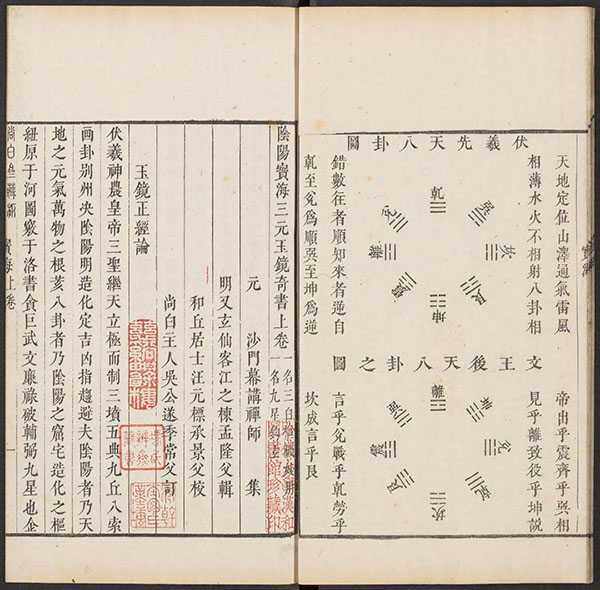 伏羲先天八卦圖
天地定位山澤通氣雷風
相薄水火不相射八卦相
乾
巽
坎
艮
坤
震
離
兌
錯數往者順知來者逆自
乾至兌爲順巽至坤爲逆
文王後天八卦之圖
帝出乎震齊乎巽相
見乎離致役乎坤說
離
坤
兌
乾
坎
艮
言乎兌戰乎乾勞乎
坎成言乎艮
陰陽寶海三元玉鏡奇書上卷
一名三白
一名九星
漢和圖書館珍藏印
元 沙門幕講禪師 集
明又玄仙客江之棟孟隆父輯
和丘居士汪元標承景父校
尚白王人吳公遂季常父訂
玉鏡正經論
伏羲神農皇帝三聖繼天立極而制三墳五典九丘八索
画卦別州央陰陽明造化定吉凶指趨避夫陰陽者乃天
地之元氣萬物之根荄八卦者乃陰陽之窟宅造化之樞
紐原于河圖竅于洛書貪巨武文廉祿破輔弼九星也企
寶海上卷
一